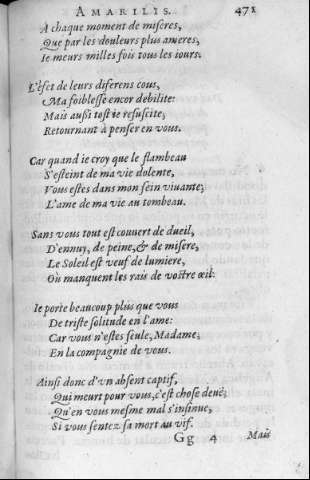 AMARILIS. 471
A chaque moment de miseres,
Que par les douleurs plus ameres,
Ie meurs milles fois tous les iours.
L'efet de leurs diferens cous,
Ma foiblesse encor debilite:
Mais aussi tost ie resuscite,
Retournant à penser en vous.
Car quand ie croy que le flambeau
S'esteint de ma vie dolente,
Vous estes dans mon sein viuante,
L'ame de ma vie au tombeau.
Sans vous tout est couuert de dueil,
D'ennuy, de peine, & de misere,
Le Soleil est veuf de lumiere,
Où manquent les rais de vostre œil.
Ie porte beaucoup plus que vous
De triste solitude en l'ame:
Car vous n'estes seule, Madame,
En la compagnie de vous.
Ainsi donc d'vn absent captif,
Qui meurt pour vous, c'est chose deuë,
Qu'en vous mesme mal s'insinue,
Si vous sentez sa mort au vif.
Gg 4 Mais